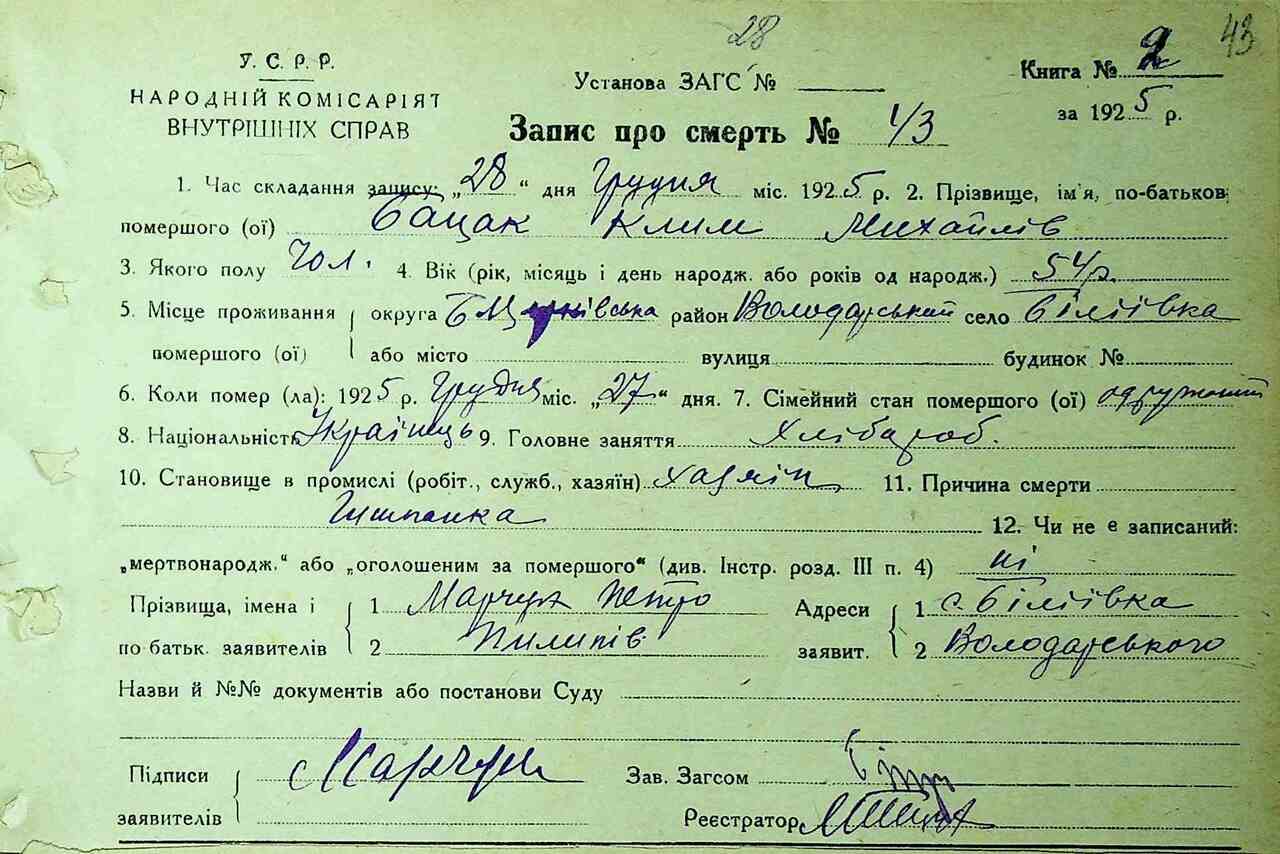 28
43
У. С. Р. Р.
НАРОДНІЙ КОМІСАРІЯТ
ВНУТРІШНІХ СПРАВ
Установа ЗАГС №
Книга № 2
за 1925 р.
Запис про смерть № 43
1. Час складання запису: „28“ дня Грудня міс. 1925 р. 2. Прізвище, ім'я, по-батьков.
помершого (ої) Бацак Клим Михайлів
3. Якого полу Чол. 4. Вік (рік, місяць і день народж. або років од народж.) 54 р.
5. Місце проживання округа БЦерківська район Володарський село Біліївка
помершого (ої) або місто вулиця будинок №
6. Коли помер (ла): 1925 р. Грудня міс. „27“ дня. 7. Сімейний стан помершого (ої) одружений
8. Національність Українець 9. Головне заняття Хлібороб.
10. Становище в промислі (робіт., служб., хазяїн) хазяїн 11. Причина смерти
12. Чи не є записаний:
„мертвонародж.“ або „оголошеним за помершого“ (див. Інстр. розд. III п. 4) ні
Прізвища, імена і 1 Марчук Петро Адреси 1 с. Біліївка
по батьк. заявителів 2 Пилипів заявит. 2 Володарського
Назви й №№ документів або постанови Суду
Підписи Марчук Зав. Загсом
заявителів Реєстратор